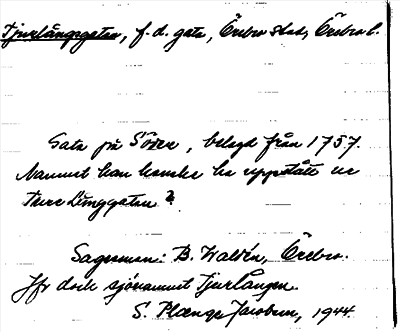 Tjurlångsgatan, f.d. gata, Örebro stad, Örebro l.
Gata på Söder, belagd från 1757.
Namnet kan kanske ha uppstått ur
Ture Långgatan?
Sagesman: B. Waldén, Örebro.
Jfr dock sjönamnet Tjurlången.
S. Plænge Jacobson, 1944